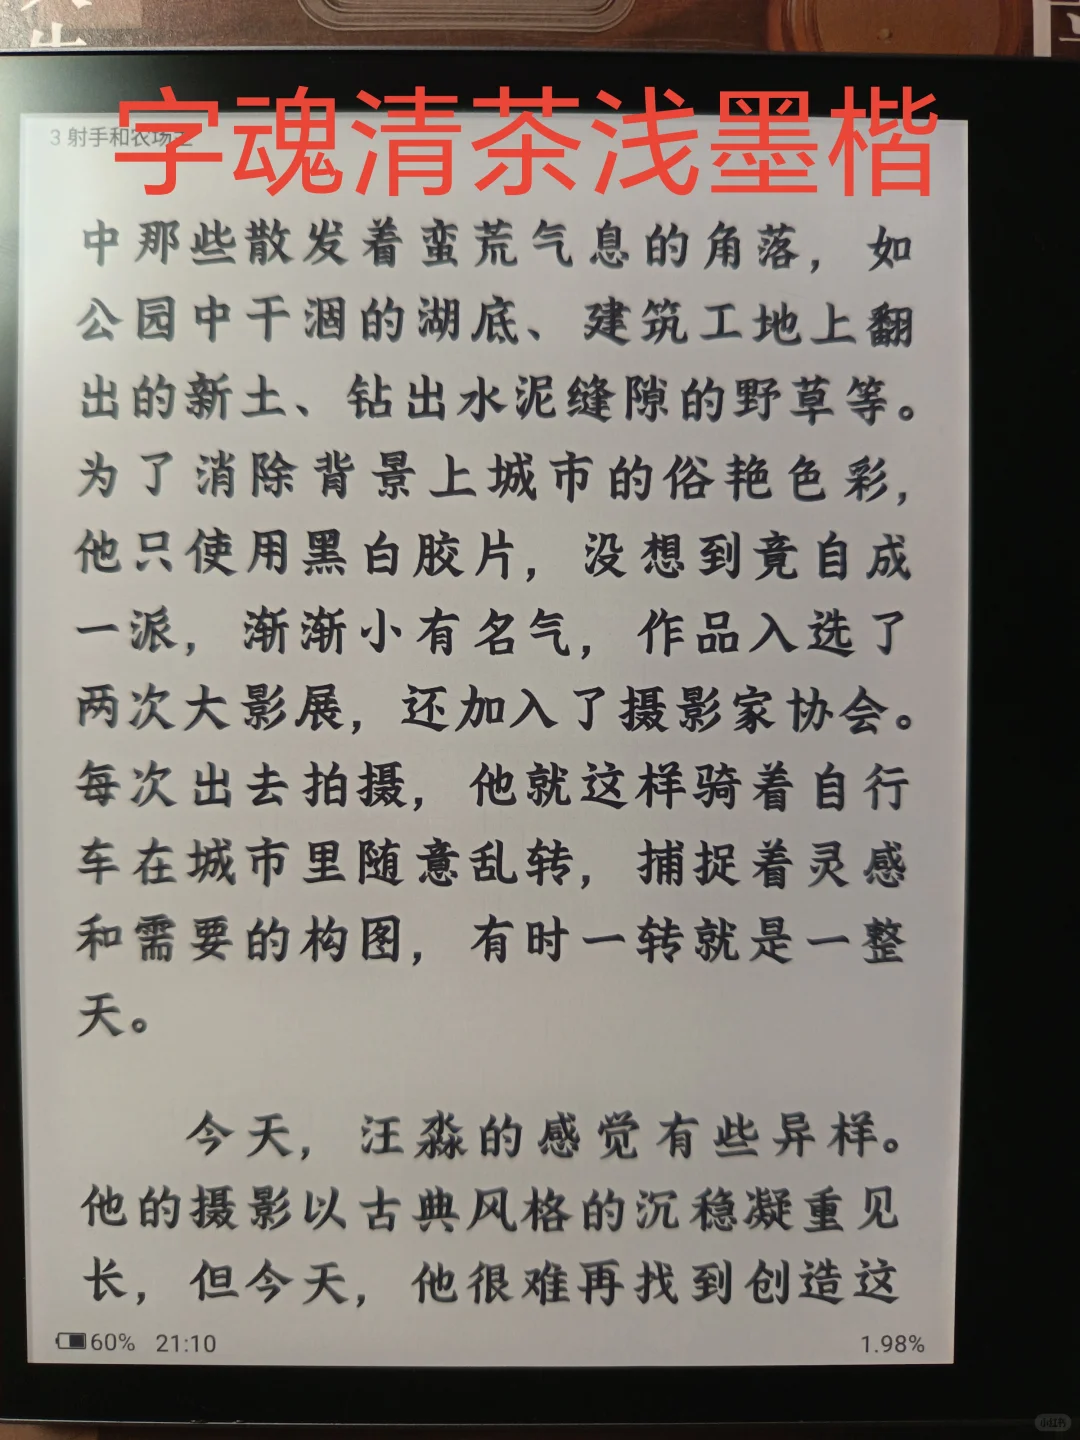 字魂清茶浅墨楷
3 射手和农场主
中那些散发着蛮荒气息的角落，如
公园中干涸的湖底、建筑工地上翻
出的新土、钻出水泥缝隙的野草等。
为了消除背景上城市的俗艳色彩，
他只使用黑白胶片，没想到竟自成
一派，渐渐小有名气，作品入选了
两次大影展，还加入了摄影家协会。
每次出去拍摄，他就这样骑着自行
车在城市里随意乱转，捕捉着灵感
和需要的构图，有时一转就是一整
天。
今天，汪淼的感觉有些异样。
他的摄影以古典风格的沉稳凝重见
长，但今天，他很难再找到创造这
60% 21:10
1.98%
小红书